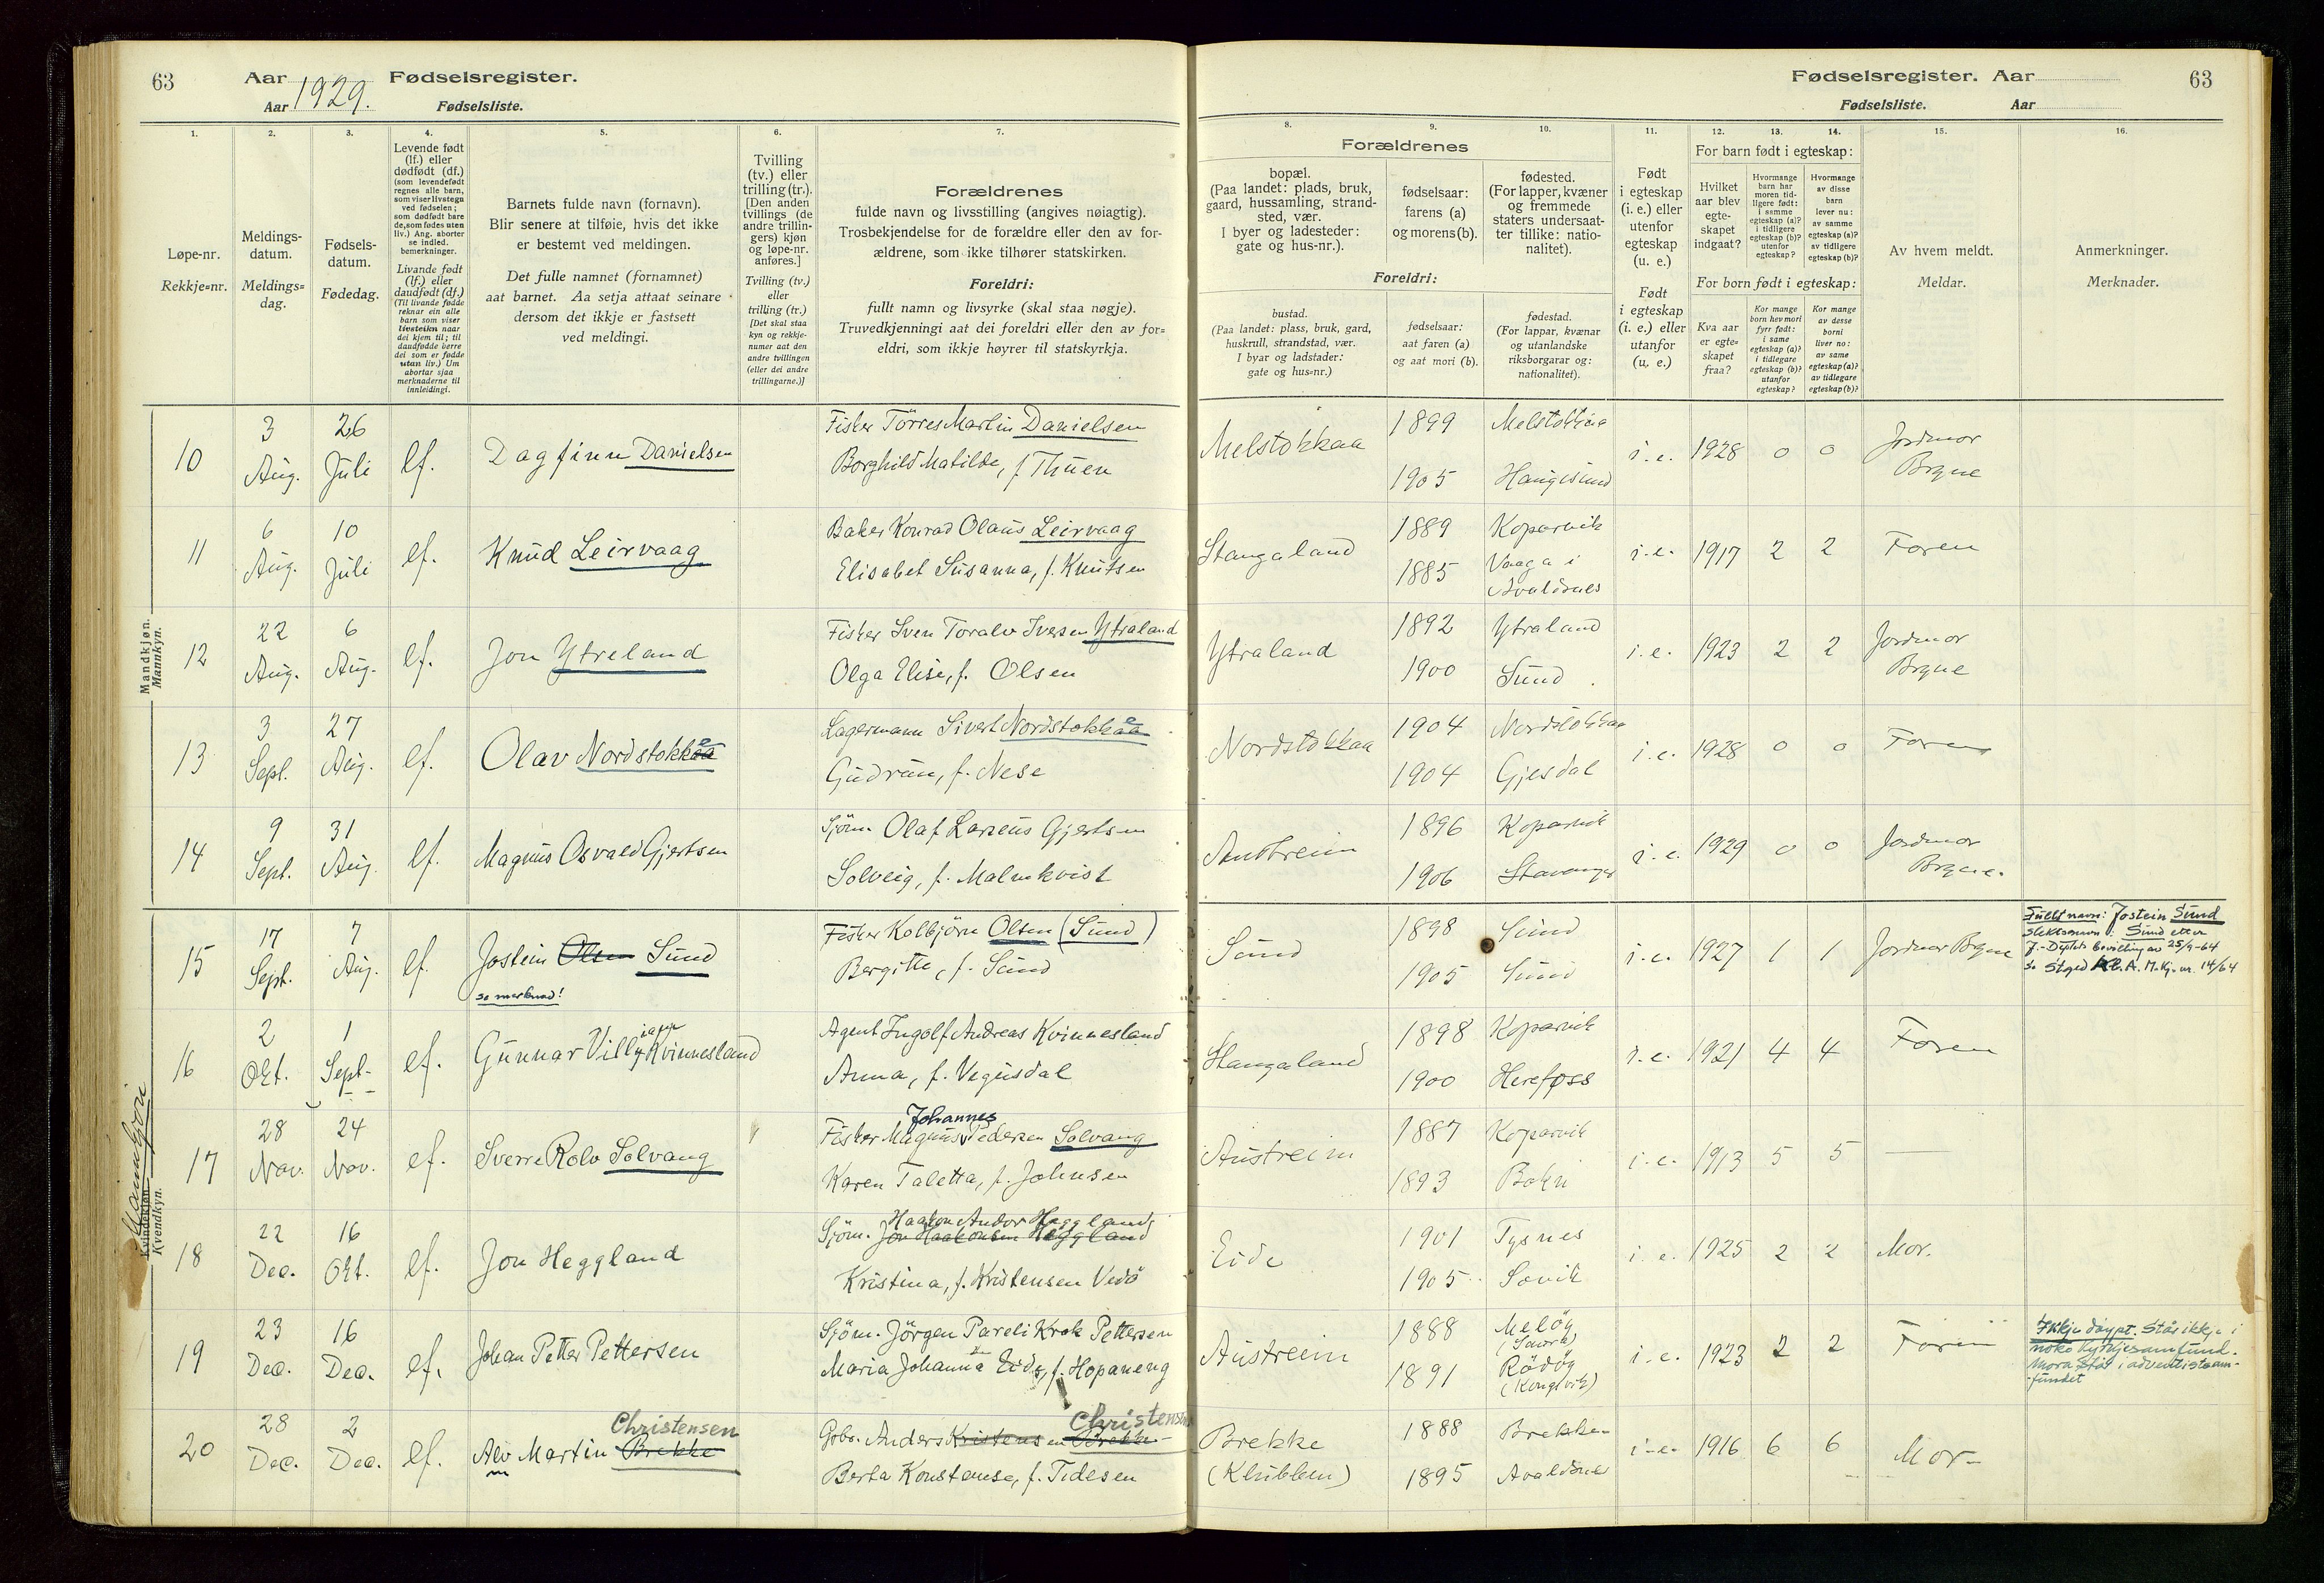 63 Aar 1929. Fødselsregister.
Aar Fødselsliste.
Fødselsregister. Aar 63
Fødselsliste. Aar
1.
Løpe-nr.
Rekkje=nr.
2.
Meldings-
datum.
Meldings=
dag.
3.
Fødsels-
datum.
Fødedag.
4.
Levende født
(lf.) eller
dødfødt (df.)
(som levendefødt
regnes alle barn,
som viser livstegn
ved fødselen;
som dødfødt bare
de, som fødes uten
liv.) Ang. aborter
se indled.
bemerkninger.
Livande født
(lf.) eller
daudfødt (df.)
(Til livande fødde
reknar ein alle
barn som viser
livsteikn naar
dei kjem til; til
daudfødde berre
dei som er fødde
utan liv.) Um
abortar sjaa
merknaderne til
innleidingi.
5.
Barnets fulde navn (fornavn).
Blir senere at tilføie, hvis det ikke
er bestemt ved meldingen.
Det fulle namnet (fornamnet)
aat barnet. Aa setja attaat seinare
dersom det ikkje er fastsett
ved meldingi.
6.
Tvilling
(tv.) eller
trilling (tr.).
[Den anden
tvillings (de
andre trillin-
gers) kjøn
og løpe-nr.
anføres.]
Tvilling (tv.)
eller
trilling (tr.)
[Det skal staa
kyn og rekkje-
numer aat den
andre tvillingen
(eller dei andre
trillingarne.)]
7.
Forældrenes
fulde navn og livsstilling (angives nøiagtig).
Trosbekjendelse for de forældre eller den av for-
ældrene, som ikke tilhører statskirken.
Foreldri:
fullt namn og livsyrke (skal staa nøgje).
Truvedkjenningi aat dei foreldri eller den av for=
eldri, som ikkje høyrer til statskyrkja.
Forældrenes
8.
bopæl.
(Paa landet: plads, bruk,
gaard, hussamling, strand-
sted, vær.
I byer og ladesteder:
gate og hus-nr.).
Foreldri:
bustad.
(Paa landet: plass, bruk, gard,
huskrull, strandstad, vær.
I byar og ladstader:
gate og hus=nr.)
9.
fødselsaar:
farens (a)
og morens (b).
fødselsaar:
aat faren (a)
og aat mori (b).
10.
fødested.
(For lapper, kvæner
og fremmede
staters undersaat-
ter tillike: natio-
nalitet).
fødestad.
(For lappar, kvænar
og utanlandske
riksborgarar og:
nationalitet).
11.
Født
i egteskap
(i. e.) eller
utenfor
egteskap
(u. e.)
Født
i egteskap
(i. e.) eller
utanfor
(u. e.)
For barn født i egteskap:
12.
Hvilket
aar blev
egte-
skapet
indgaat?
For born født i egteskap:
Kva aar
er egte=
skapet
fraa?
13.
Hvormange
barn har
moren tid-
ligere født:
i samme
egteskap (a)?
i tidligere
egteskap (b)?
utenfor
egteskap?
Kor mange
born hev mori
fyrr født:
i same
egteskap (a)?
i tidlegare
egteskap (b)?
utanfor
egteskap?
14.
Hvormange
av disse
barn
lever nu:
av samme
egteskap (a)?
av tidligere
egteskap (b)?
Kor mange
av desse
borni
liver no:
av same
egteskap (a)?
av tidlegare
egteskap (b)?
15.
Av hvem meldt.
Meldar.
16.
Anmerkninger.
Merknader.
Mandkjøn.
Mannkyn.
Mannkjøn
Kvindekjøn.
Kvendkyn.
10 3 Aug. 26 Juli lf. Dagfinn Danielsen
Fisker Törres Martin Danielsen
Borghild Matilde, f. Thuen
Melstokkaa 1899 Melstokkaa
1905 Haugesund
i. e. 1928 0 0 Jordmor Bryne
11 6 Aug. 10 Juli lf. Knud Leirvaag
Baker Konrad Olaus Leirvaag
Elisabet Susanna, f. Knutsen
Stangaland 1889 Kopervik
1885 Vaaga i Avaldsnes
i. e. 1917 2 2 Faren
12 22 Aug. 6 Aug. lf. Jon Ytreland
Fisker Sven Toralv Iversen Ytraland
Olga Elise, f. Olsen
Ytraland 1892 Ytraland
1900 Sund
i. e. 1923 2 2 Jordmor Bryne
13 3 Sept. 27 Aug. lf. Olav Nordstokkaa e
Lagermann Sivert Nordstokkaa e
Gudrun, f. Nese
Nordstokkaa 1904 Nordstokkaa
1904 Gjesdal
i. e. 1928 0 0 Faren
14 9 Sept. 31 Aug. lf. Magnus Osvald Gjertsen
Sjöm. Olaf Larseus Gjertsen
Solveig, f. Malmkvist
Austreim 1896 Kopervik
1906 Stavanger
i. e. 1929 0 0 Jordmor Bryne.
15 17 Sept. 7 Aug. lf. Jostein Olsen Sund
se merknad!
Fisker Kolbjörn Olsen (Sund)
Bergitte, f. Sund
Sund 1898 Sund
1905 Sund
i. e. 1927 1 1 Jordmor Bryne
Fullt navn: Jostein Sund
Slektsnavn: Sund etter
J.-Dep.ets bevilling av 25/9-64
se Skjed Kl. A. M.kj. nr. 14/64
16 2 Okt. 1 Sept. lf. Gunnar Villy Kvinnesland
Agent Ingolf Andreas Kvinnesland
Anna, f. Vegusdal
Stangaland 1898 Kopervik
1900 Herefoss
i. e. 1921 4 4 Faren
17 28 Nov. 24 Nov. lf. Sverre Rolv Solvang
Johannes
Fisker Magnus Pedersen Solvang
Karen Taletta, f. Johnsen
Austreim 1887 Kopervik
1893 Bokn
i. e. 1913 5 5 —
18 22 Dec. 16 Okt. lf. Jon Heggland
Haakon Andor Heggland
Sjöm. Jon Haakonsen Heggland
Kristina, f. Kristensen Vedö
Eide 1901 Tysnes
1905 Sævik
i. e. 1925 2 2 Mor.
19 23 Dec. 16 Dec. lf. Johan Petter Pettersen
Sjöm. Jörgen Pareli Krok Pettersen
Maria Johanna Eide, f. Hopaneng
Austreim 1888 Melöy
1891 Rödöy
i. e. 1923 2 2 Faren
Ikkje döypt. Står ikkje i
noko kyrkjesamfund.
Mora står i adventistsam-
fundet
20 28 Dec. 2 Dec. lf. Alv Martin Brekke Christensen
Gbr. Anders Kristensen Brekke Christensen
Berta Konstanse, f. Tidesen
Brekke 1888 Brekke
1895 Avaldsnes
i. e. 1916 6 6 Mor